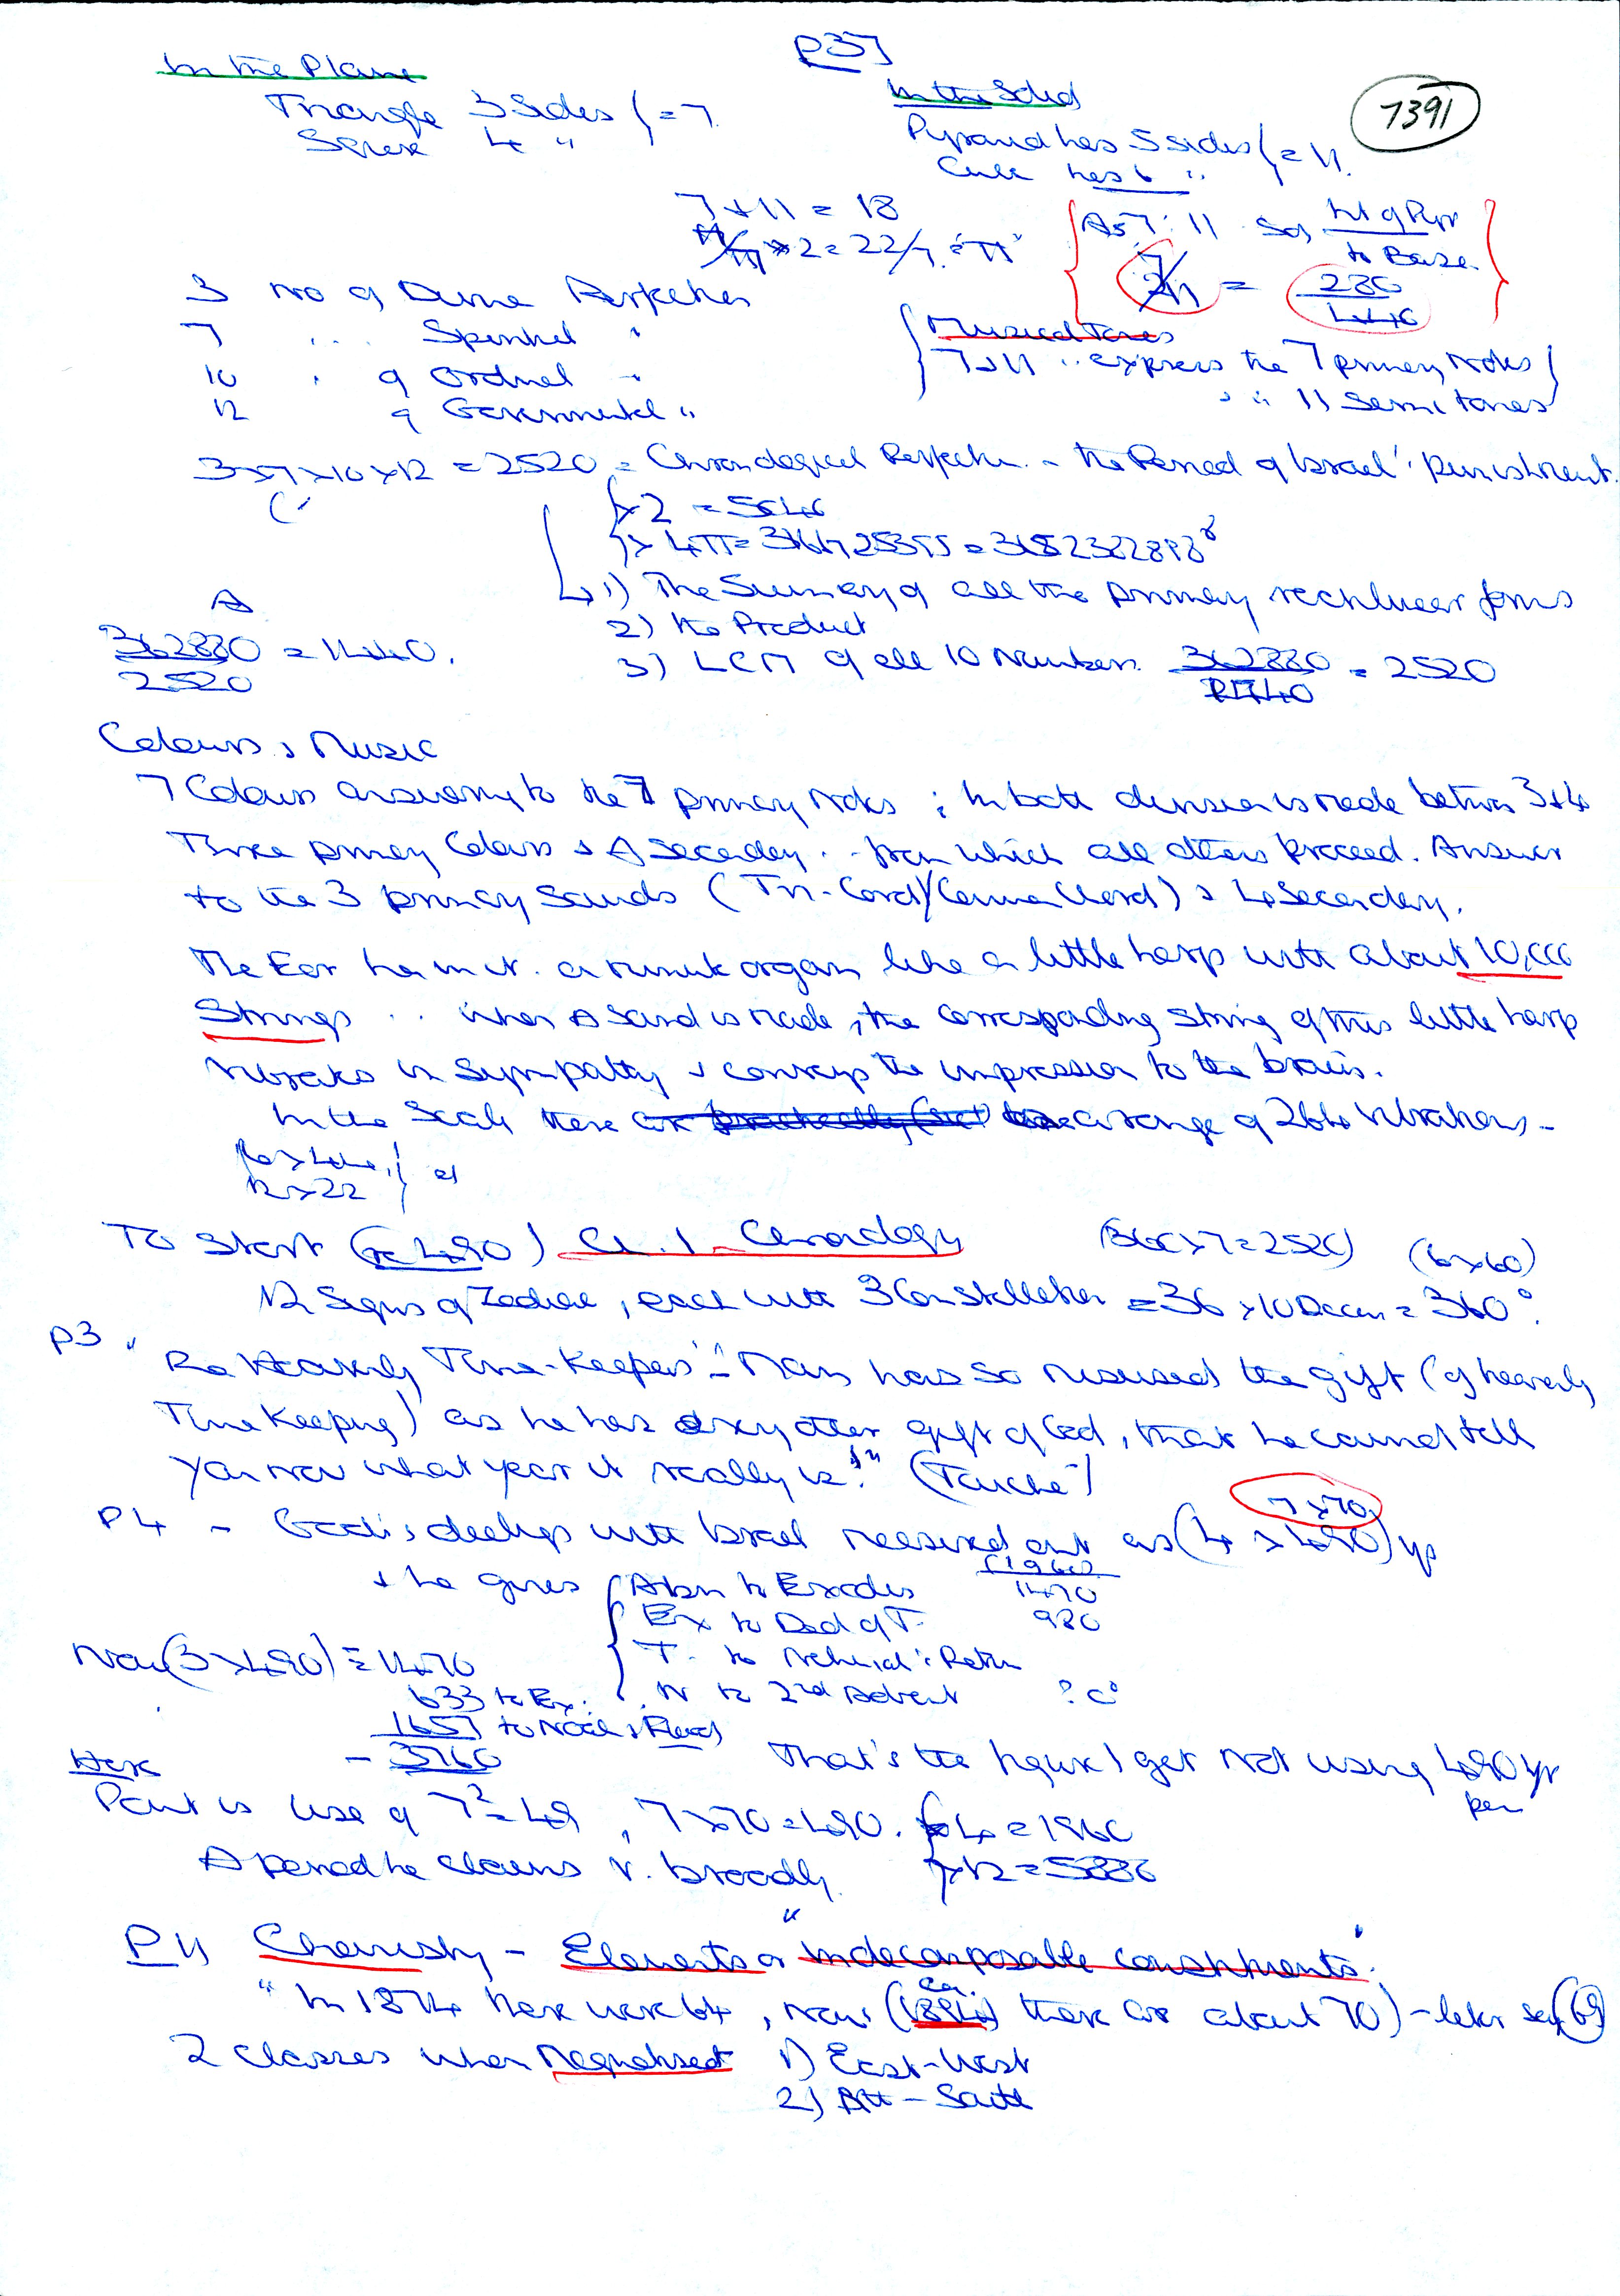 P37
7391
In the Plane
Triangle 3 Sides } = 7
Square 4 "
In the Solid
Pyramid has 5 sides } = 11.
Cube has 6 "
7 + 11 = 18
× 2 = 22/7 = "π"
As 7 : 11 So, ht of Pyr
to Base
7/11 = 280
440
3 No of Divine Perfection
7 " .. Spiritual "
10 " of Ordinal "
12 of Governmental "
Musical Tones
7 + 11 .. express the 7 primary Notes
" " 11 Semitones
3×7×10×12 = 2520 = Chronological Perfection - the Period of Israel's punishment.
× 2 = 5040
× 4π =
1) The Summary of all the primary rectilinear forms
2) the Product
3) LCM of all 10 Numbers. 362880 = 2520
1440
362880 = 1440.
2520
Colours & Music
7 Colours answering to the 7 primary Notes ; In both division is made between 3 & 4
Three primary Colours & 4 Secondary .. from which all others proceed. Answer
to the 3 primary Sounds (Tri-Cord/Common Chord) & 4 Secondary.
The Ear has in it. a minute organ like a little harp with about 10,000
Strings .. when a Sound is made, the corresponding string of this little harp
vibrates in Sympathy & conveys the impression to the brain.
In the Scale there are a range of 264 Vibrations -
6×44, } or
12×22
To Start (re 490) Ch. 1 - Chronology (360×7=2520) (6×60)
12 Signs of Zodiac, each with 3 Constellation = 36 × 10 Decan = 360°.
P3 "Re Heavenly Time-Keepers" - "Man has so misused the gift (of heavenly
Time Keeping) as he has every other gift of God, that he cannot tell
you now what year it really is!" (Touché)
7×70
P4 - God's dealings with Israel measured out as (4 × 490) yrs
& he gives { Abm to Exodus (1960)
1470
Ex to Ded of T. 980
T. to Nehemiah's Return
N to 2nd Advent ? 0
Now (3×490) = 1470
633 to Ex.
1657 to Noah's Flood
- 3760 That's the figure I get not using 490 yr
per
Here
Point is use of 7² = 49, 7×70 = 490. × 4 = 1960
× 12 = 5880
A period he claims v. broadly.
P11 Chemistry - Elements or "indecomposable constituents";
"In 1874 there were 64, now (ca. 1894) there are about 70) - later say 69
2 classes when Magnetised 1) East-West
2) Nth - South